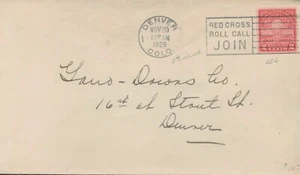 DENVER
NOV 20
11 AM
1929
COLO.
1
RED CROSS
ROLL CALL
JOIN
2 CENTS 2
Gano-Downs Co.
16th at Stout St.
Denver